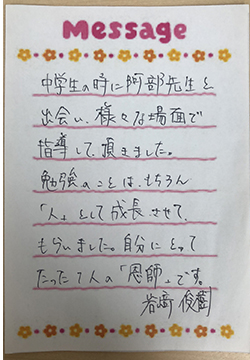 Message
中学生の時に阿部先生と
出会い、様々な場面で
指導して頂きました。
勉強のことは、もちろん
「人」として成長させて
もらいました。自分にとって
たった1人の「恩師」です。
岩﨑 俊樹